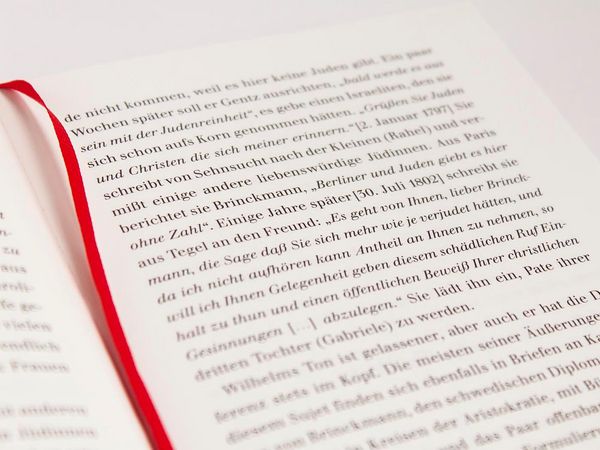 zu
ife ge-
vielen
endlich
Frauen
anderen
Jüdinnen
de nicht kommen, weil es hier keine Juden gibt. Ein paar
Wochen später soll er Gentz ausrichten, „bald werde es aus
sein mit der Judenreinheit“, es gebe einen Israeliten, den sie
sich schon aufs Korn genommen hätten. „Grüßen Sie Juden
und Christen die sich meiner erinnern.“[2. Januar 1797] Sie
schreibt von Sehnsucht nach der Kleinen (Rahel) und ver-
mißt einige andere liebenswürdige Jüdinnen. Aus Paris
berichtet sie Brinckmann, „Berliner und Juden giebt es hier
ohne Zahl“. Einige Jahre später [30. Juli 1802] schreibt sie
aus Tegel an den Freund: „Es geht von Ihnen, lieber Brinck-
mann, die Sage daß Sie sich mehr wie je verjudet hätten, und
da ich nicht aufhören kann Antheil an Ihnen zu nehmen, so
will ich Ihnen Gelegenheit geben diesem schädlichen Ruf Ein-
halt zu thun und einen öffentlichen Beweiß Ihrer christlichen
Gesinnungen [...] abzulegen.“ Sie lädt ihn ein, Pate ihrer
dritten Tochter (Gabriele) zu werden.
Wilhelms Ton ist gelassener, aber auch er hat die D
ferenz stets im Kopf. Die meisten seiner Äußerunge
diesem Sujet finden sich ebenfalls in Briefen an Ka
von Brinckmann, den schwedischen Diplom
Kreisen der Aristokratie, mit Bü
und das Paar offenba
Formulier